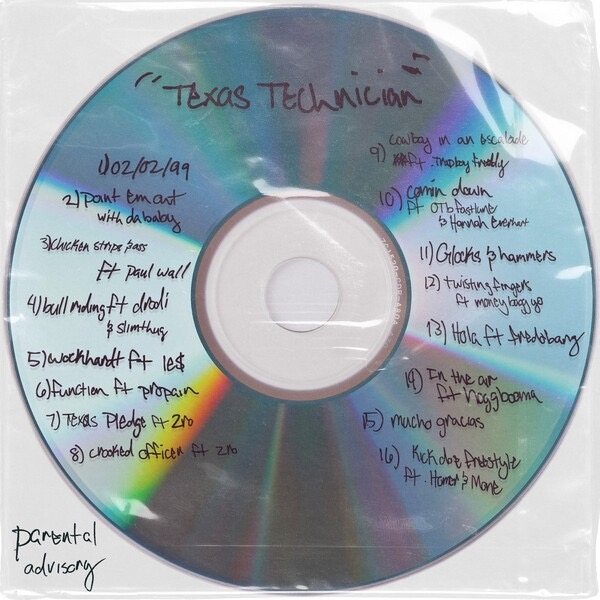 "Texas Technician"
1) 02/02/99
2) paint em out
with da baby
3) chicken strips $ ass
ft paul wall
4) bull riding ft drodi
& slimthug
5) wockhardt ft le$
6) function ft propain
7) Texas Pledge ft Zro
8) crooked officer ft zro
9) cowboy in an escalade
ft. Trapboy freddy
10) comin down
ft OTB fastlane
& Hannah Everhart
11) Glocks & hammers
12) twisting fingers
ft moneybagg yo
13) Hola ft fredobang
14) In the air
ft hoggbooma
15) mucho gracias
16) Kickdoe freestyle
ft. Homer & Mone
parental
advisory